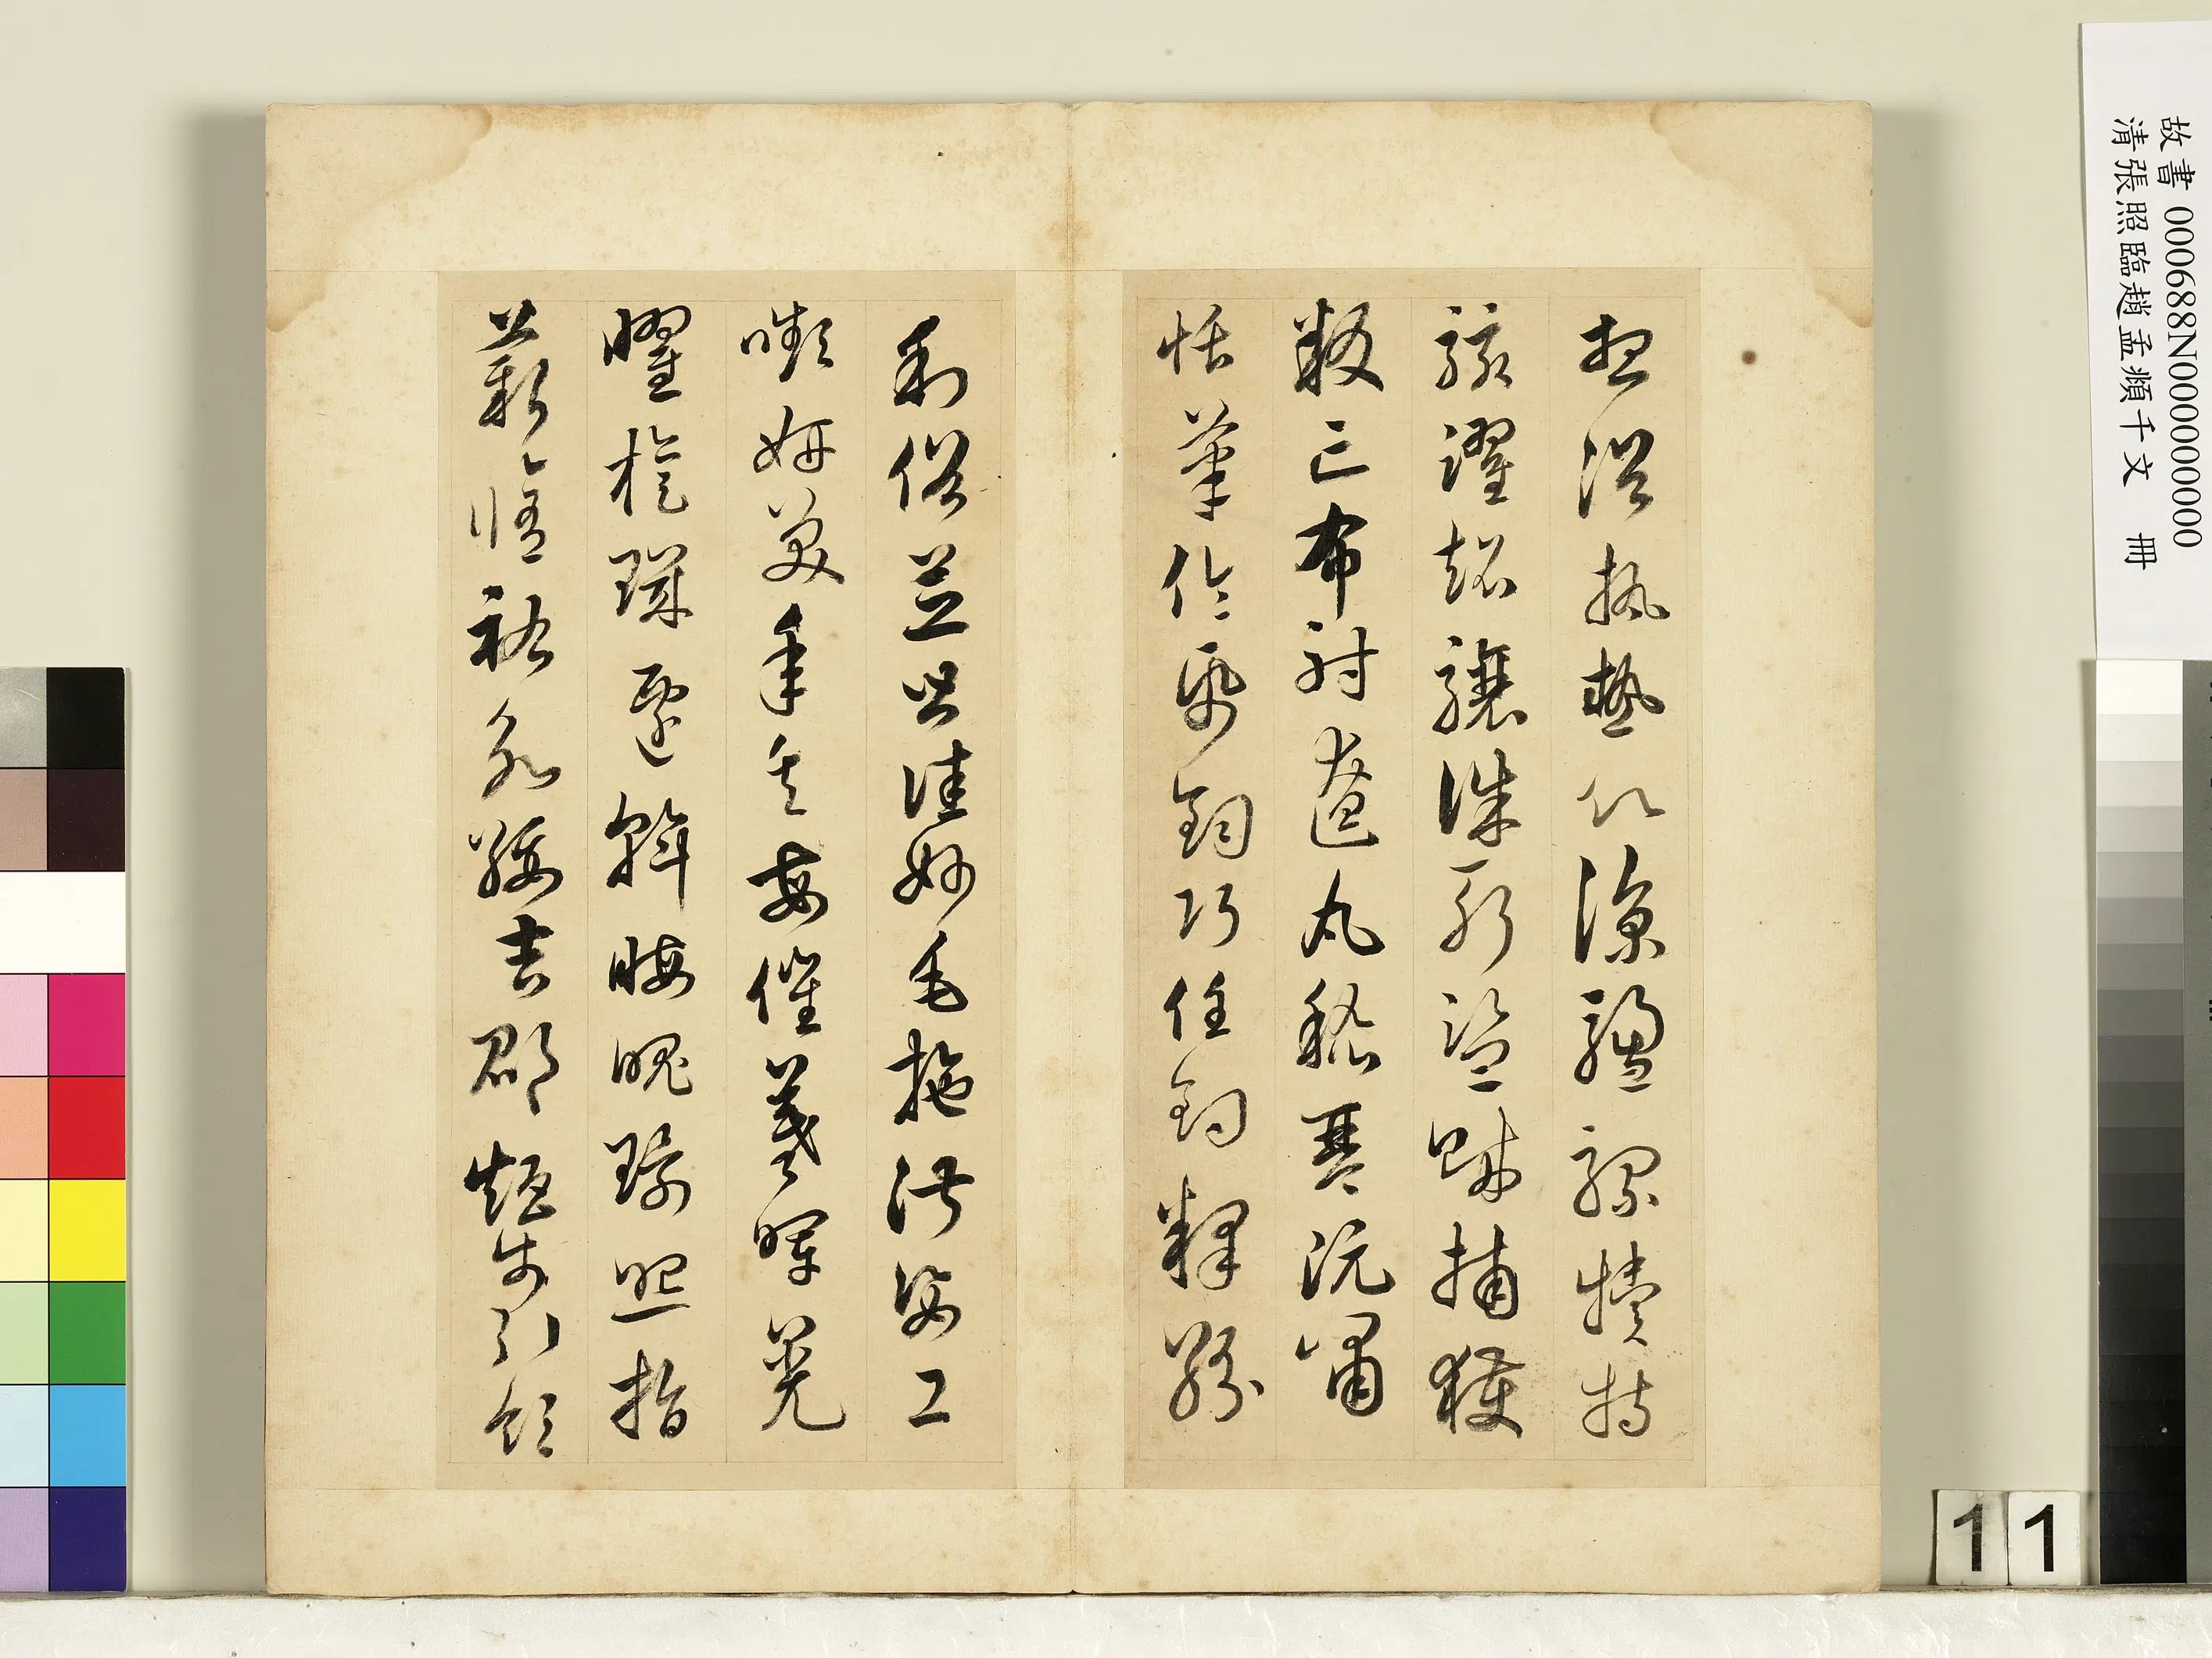 想浴執熱願涼驢騾犢特
駭躍超驤誅斬盜賊捕獲
叛亡布射遼丸嵇琴阮嘯
恬筆倫紙鈞巧任釣釋紛
利俗並皆佳妙毛施淑姿工
嚬妍笑年矢每催羲暉晃
曜旋璣懸斡晦魄環照指
薪修祜永綏吉邵矩步引領
故書 000688N000000000
清張照臨趙孟頫千文 冊
11